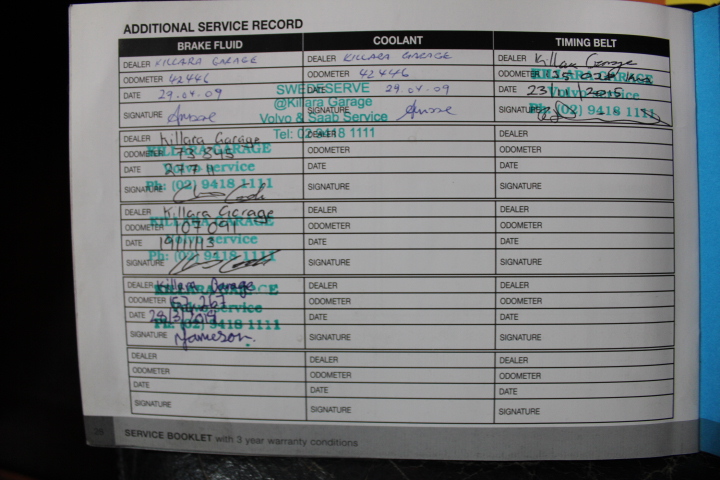 ADDITIONAL SERVICE RECORD
BRAKE FLUID COOLANT TIMING BELT
DEALER KILLARA GARAGE DEALER KILLARA GARAGE DEALER Killara Garage
ODOMETER 42446 ODOMETER 42446 ODOMETER
KILLARA GARAGE
DATE 29.04.09 DATE 29.04.09 DATE 23 2015
Volvo service
SIGNATURE SIGNATURE SIGNATURE
Ph: (02) 9418 1111
SWEDESERVE
@Killara Garage
Volvo & Saab Service
Tel: 02 9418 1111
DEALER Killara Garage DEALER DEALER
KILLARA GARAGE
ODOMETER 73845 ODOMETER ODOMETER
Volvo service
DATE DATE DATE
Ph: (02) 9418 1111
SIGNATURE SIGNATURE SIGNATURE
DEALER Killara Garage DEALER DEALER
KILLARA GARAGE
ODOMETER 107091 ODOMETER ODOMETER
Volvo service
DATE 19/11/13 DATE DATE
Ph: (02) 9418 1111
SIGNATURE SIGNATURE SIGNATURE
DEALER Killara Garage DEALER DEALER
KILLARA GARAGE
ODOMETER 157 267 ODOMETER ODOMETER
Volvo service
DATE DATE DATE
Ph: (02) 9418 1111
SIGNATURE Jameson SIGNATURE SIGNATURE
DEALER DEALER DEALER
ODOMETER ODOMETER ODOMETER
DATE DATE DATE
SIGNATURE SIGNATURE SIGNATURE
SERVICE BOOKLET with 3 year warranty conditions